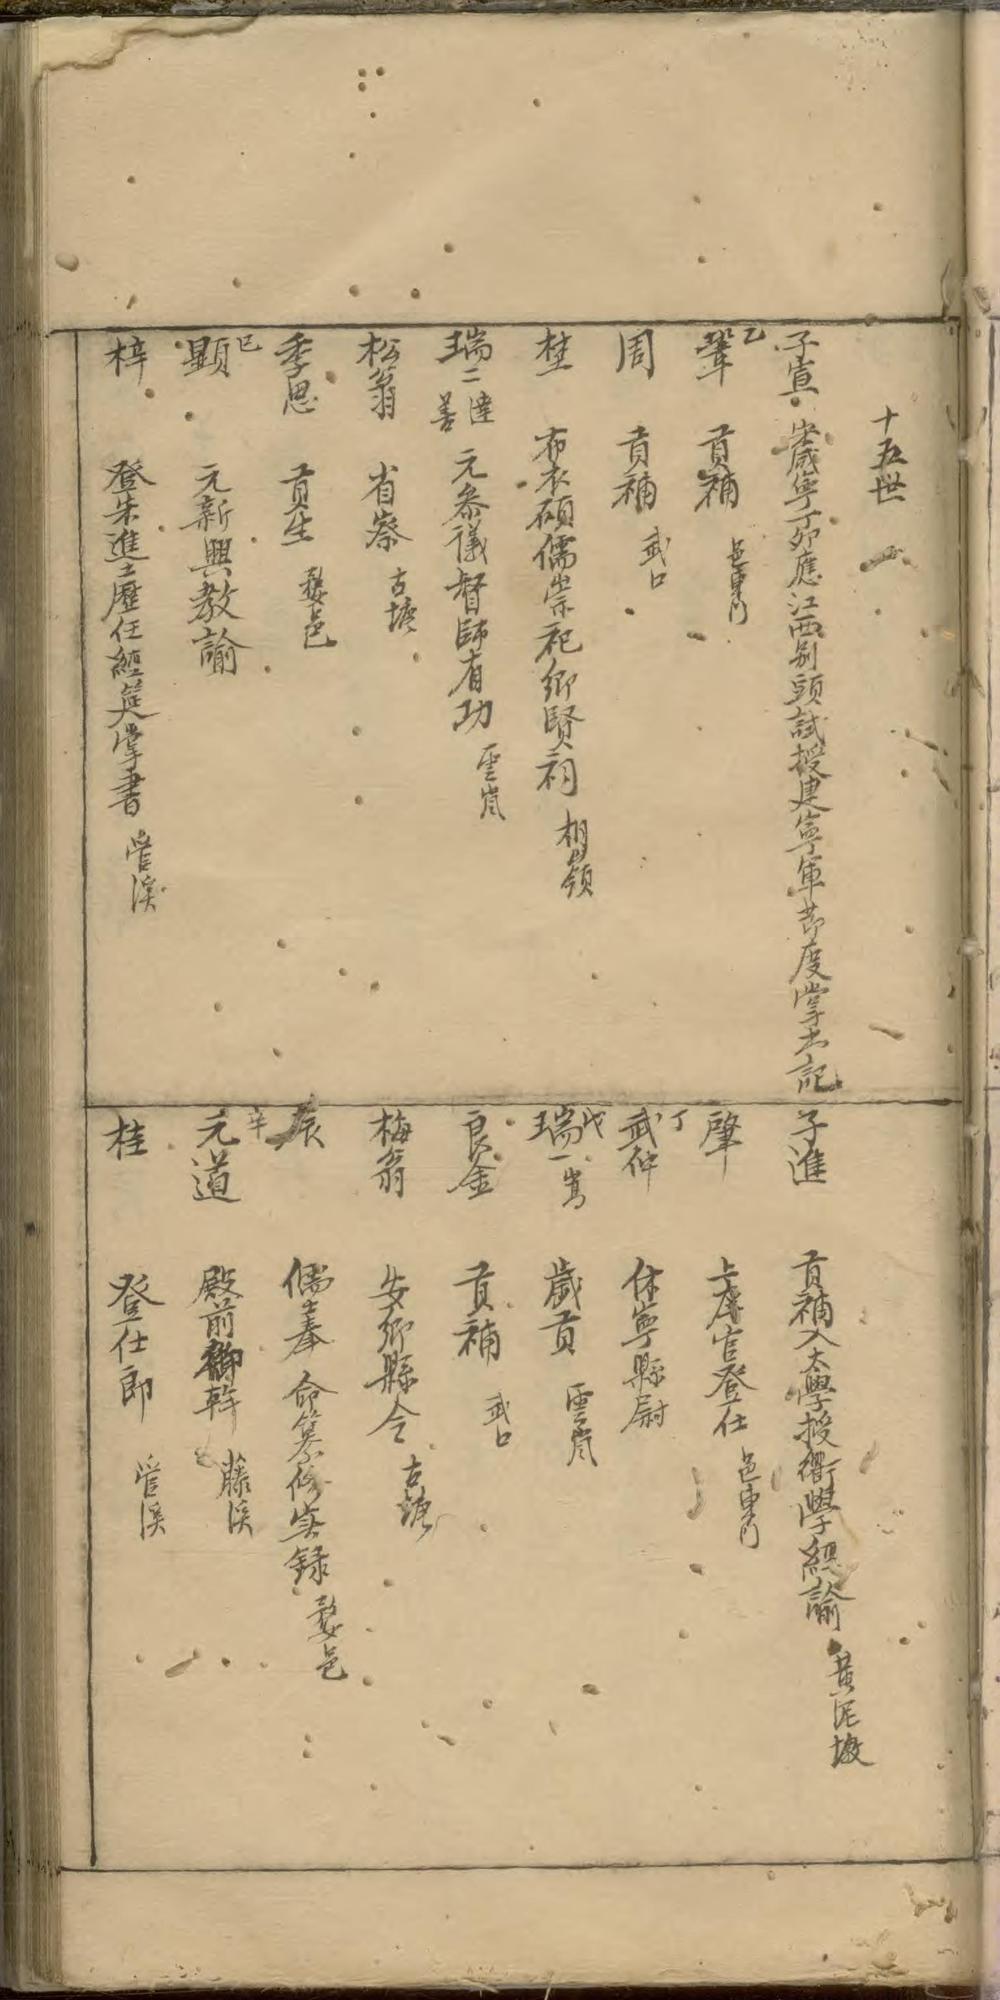 十五世
子宣 咸寧丁卯應江西别頭試授建寧軍節度掌书記
乙
鞏 貢補 邑東门
周 貢補 武口
桂 布衣碩儒崇祀鄉賢祠 桐嶺
瑞二達善 元参議督師有功 雲嵐
松翁 省祭 古塘
季思 貢生 婺邑
巳
顯 元新興教諭
梓 登朱進士歷任經筵掌書 管溪
子進 貢補入太學授衢學經諭 黄泥墩
肇 上庠官登仕 邑東门
丁
武仲 休寧縣尉
戊
瑞一嵩 歲貢 雲嵐
良金 貢補 武口
梅翁 安鄉縣令 古塘
辰 儒士奉 命纂修実録 婺邑
辛
元道 殿前御幹 藤溪
桂 登仕郎 管溪